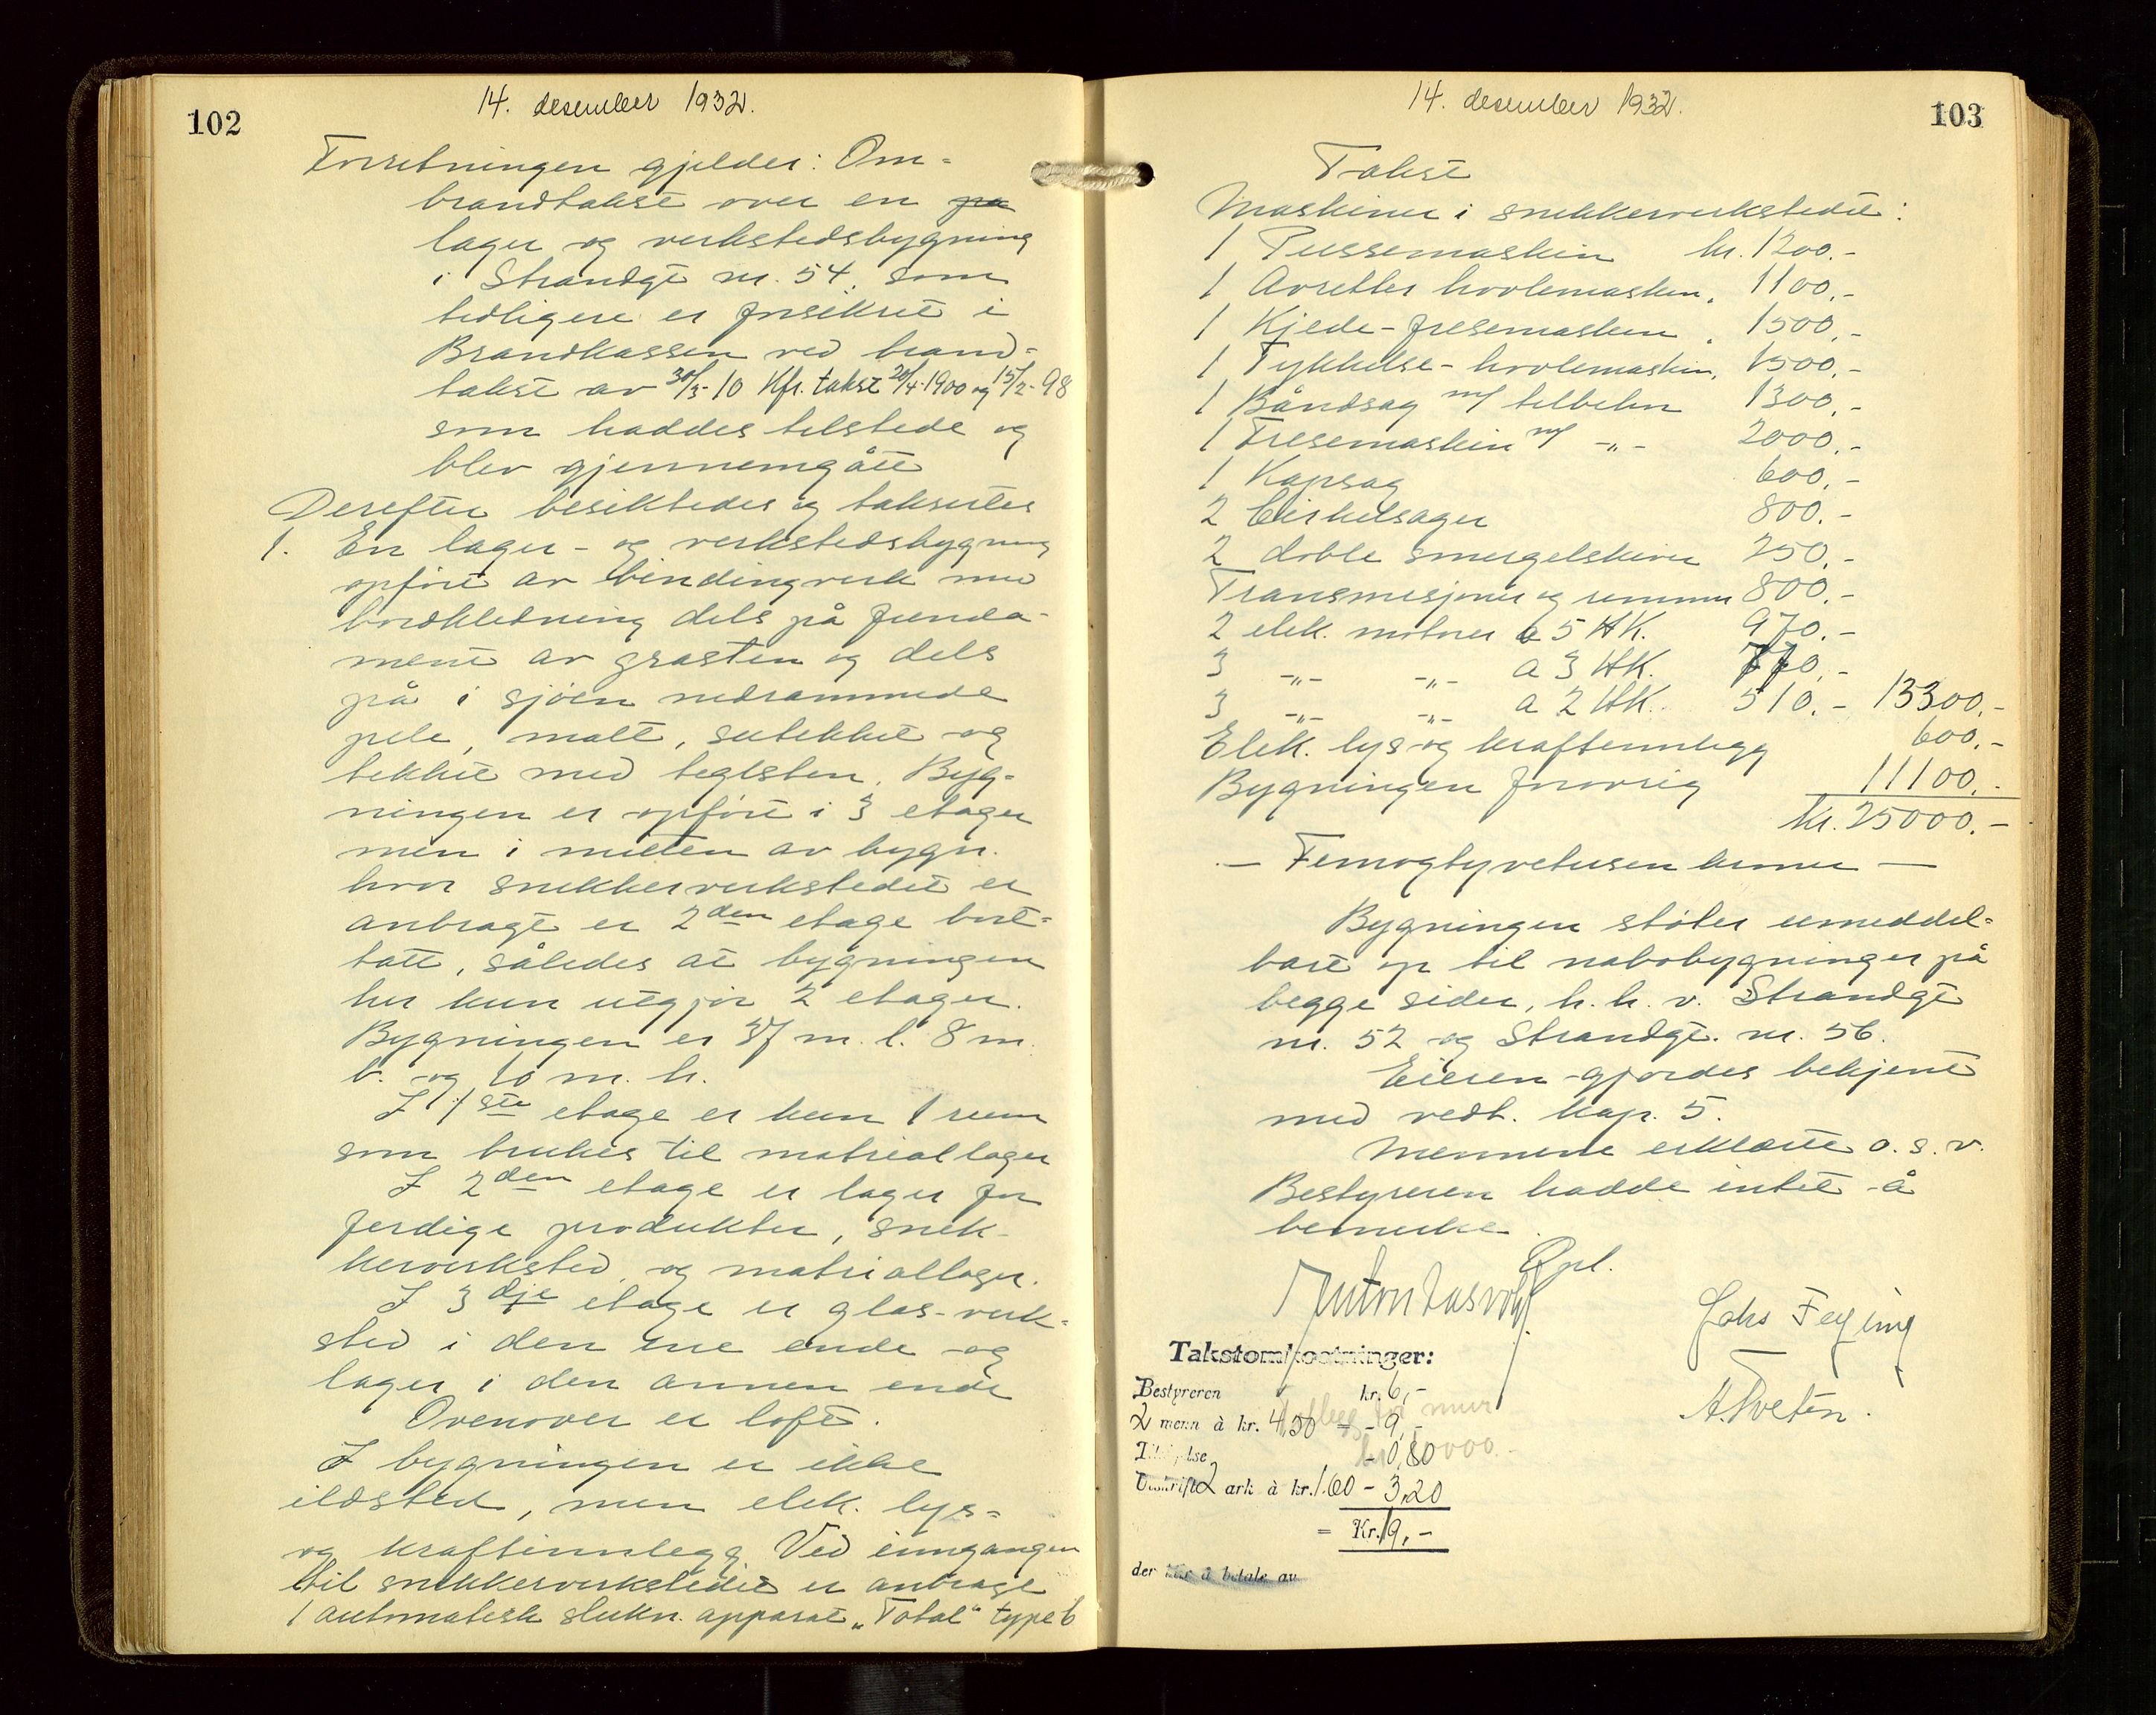 102
14. desember 1932.
Forretningen gjelder: Om-
brandtakst over en på
lager og verkstedsbygning
i Strandgt nr. 54, som
tidligere er forsikret i
Brandkassen ved brand-
takst av 30/3-10 Kfr. takst 20/4-1900 og 15/2-98
som haddes tilstede og
blev gjennemgått
Derefter besiktedes og taksertes
1. En lager- og verkstedsbygning
opført av bindingverk med
bordkledning dels på funda-
ment av gråsten og dels
på i sjøen nedrammede
pele, malt, sutekket og
tekket med teglsten. Byg-
ningen er opført i 3 etager
men i midten av bygn.
hvor snekkerverkstedet er
anbragt er 2den etage bort-
tatt, således at bygningen
her kun utgjør 2 etager.
Bygningen er 37 m. l. 8 m.
b. og 10 m. h.
I 1ste etage er kun 1 rum
som brukes til matriallager
I 2den etage er lager for
ferdige produkter, snek-
kerverksted og matriallager.
I 3dje etage er glas-verk-
sted i den ene ende og
lager i den annen ende
Ovenover er loft.
I bygningen er ikke
ildsted, men elek. lys-
og kraftinnlegg. Ved inngangen
til snekkerverkstedet er anbragt
1 automatisk slukn. apparat "Total" type 6
14. desember 1932.
103
Takst
Maskiner i snekkerverkstedet:
1 Pussemaskin kr. 1200.-
1 Avretter hovlemaskin, 1100,-
1 Kjede-fresemaskin , 1500,-
1 Tykkelse-hovlemaskin, 1500,-
1 Båndsag m/ tilbehør 1300,-
1 Fresemaskin m/ -"- 2000,-
1 Kapsag 600,-
2 Cirkelsager 800.-
2 doble smergelskiver 250,-
Transmisjoner og remmer 800,-
2 elek. motorer a 5 HK. 970.-
3 -"- -"- a 3 HK. 770,-
3 -"- -"- a 2 HK. 510.- 13300,-
Elek. lys og kraftinnlegg 600,-
Bygningen forøvrig 11100.-
Kr. 25000.-
— Femogtyvetusen kroner —
Bygningen støter umiddel-
bart op til nabobygninger på
begge sider, h. h. v. Strandgt
nr. 52 og Strandgt. nr. 56.
Eieren gjordes bekjent
med vedt. kap. 5.
Mennene erklærte o. s. v.
Bestyreren hadde intet å
bemerke.
Opl.
Jahs Feyling
A. Tveten.
Takstomkostninger:
Bestyreren kr. 6,-
2 menn à kr. 4,50 = - 9,-
- 0,80
Utskrift 2 ark à kr. 1.60 - 3,20
= Kr. 19,-
der bør å betale av